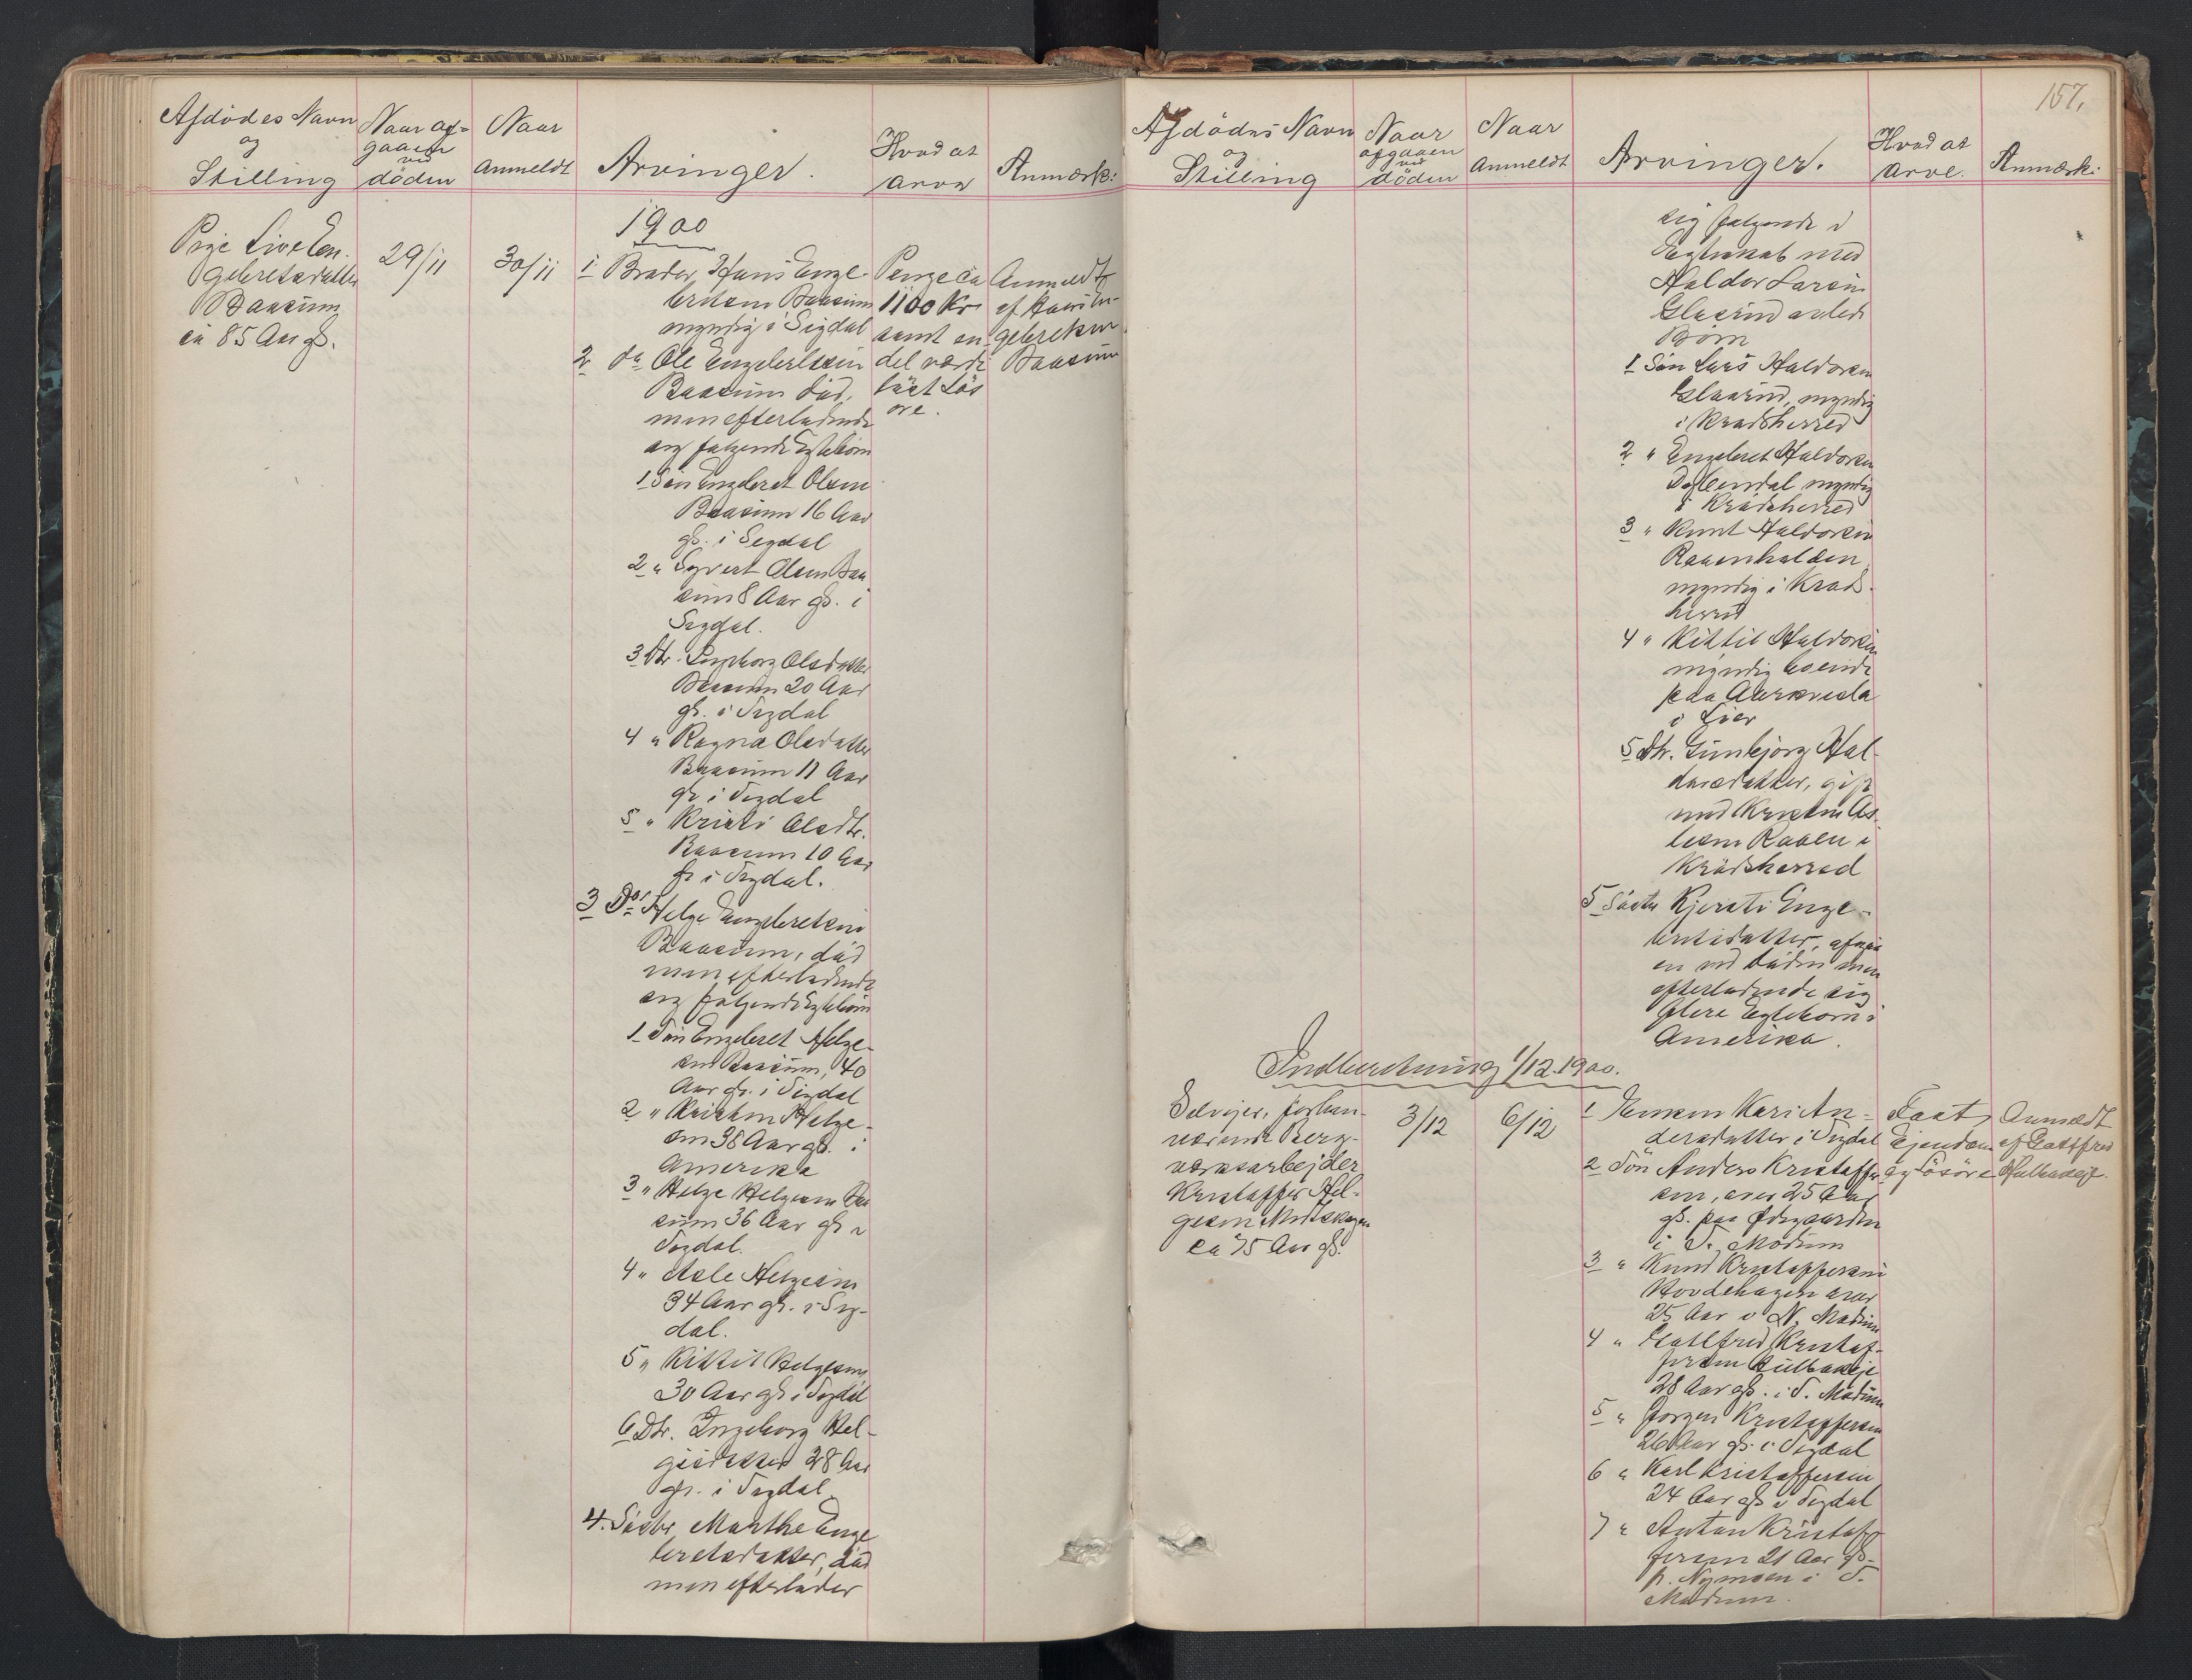 Afdødes Navn
og
Stilling
Naar af-
gaaen
ved
døden
Naar
Anmeldt
Arvinger.
Hvad at
arve
Anmærk:
1900
Pige Live En-
gebretsdatter
Baasum
ca 85 Aar gl.
29/11
30/11
1 Broder, Hans Enge-
bretsen Baasum
myndig i Sigdal
2 do Ole Engebretsen
Baasum død,
men efterladende
sig følgende Egtebörn
1 Sön Engebret Olsen
Baasum 16 Aar
gl. i Sigdal
2 " Syvert Olsen Baa
sum 8 Aar gl. i
Sigdal.
3 Dtr. Ingeborg Olsdatter
Baasum 20 Aar
gl. i Sigdal
4 " Ragna Olsdatter
Baasum 11 Aar
gl. i Sigdal
5 " Kristi Olsdtr.
Baasum 10 Aar
gl. i Sigdal.
3 Do Helge Engebretsen
Baasum, död
men efterladende
sig følgende Egtebörn
1 Sön Engebret Helge-
sen Baasum, 40
Aar gl. i Sigdal
2 " Kristen Helge-
sen 38 Aar gl. i
Amerika
3 " Helge Helgesen Baa
sum 36 Aar gl. i
Sigdal.
4 " Asle Helgesen
34 Aar gl. i Sig-
dal.
5 " Kittil Helgesen
30 Aar gl. i Sigdal
6 Dtr. Ingeborg Hel-
gesdatter 28 Aar
gl. i Sigdal
4. Söster, Marthe Enge
bretsdatter, död
men efterlader
Penge ca
1100 Kr
samt en
del værdi
löst Lös
øre.
Anmeldt
af Hans En-
gebretsen
Baasum
157.
Afdödes Navn
og
Stilling
Naar
afgaaen
ved
döden
Naar
Anmeldt
Arvinger.
Hvad at
arve.
Anmærk:
sig følgende i
Egteskab med
Haldor Larsen
Glesrud avlede
Börn
1 Sön Lars Haldorsen
Glesrud, myndig
i Krödsherred
2 " Engebret Haldorsen
myndig
i Krödsherred
3 " Knut Haldorsen
Raaenhalden
myndig i Kröds-
herred
4 " Kittil Haldorsen
myndig boende
paa Aarkvisla
i Lier
5 Dtr. Gunbjörg Hal-
dorsdatter, gift
med Kristen As-
lesen Raaen i
Krödsherred
5 Söster Kjersti Enge-
bretsdatter, afgaa
en ved döden men
efterladende sig
flere Egtebörn i
Amerika.
Indberetning 1/12 1900.
Selveier, forhen-
værende Berg-
værksarbejder
Kristoffer Hel-
gesen Midtskogen
ca 75 Aar gl.
3/12
6/12
1 Enken Kari An-
dersdatter i Sigdal
2 Sön Anders Kristoffer
sen, over 25 Aar
gl. paa Ødegaarden
i S. Modum
3 " Knud Kristoffersen
Hovdehagen over
25 Aar i N. Modum
4 " Gottfred Kristof-
fersen Kulbaseje
28 Aar gl. i S. Modum
5 " Jörgen Kristoffersen
26 Aar gl. i Sigdal
6 " Karl Kristoffersen
24 Aar gl. i Sigdal
7 " Anton Kristof-
fersen 21 Aar gl.
p. Nymoen i S.
Modum.
Fast
Ejendom
og Lösöre
Anmeldt
af Gottfred